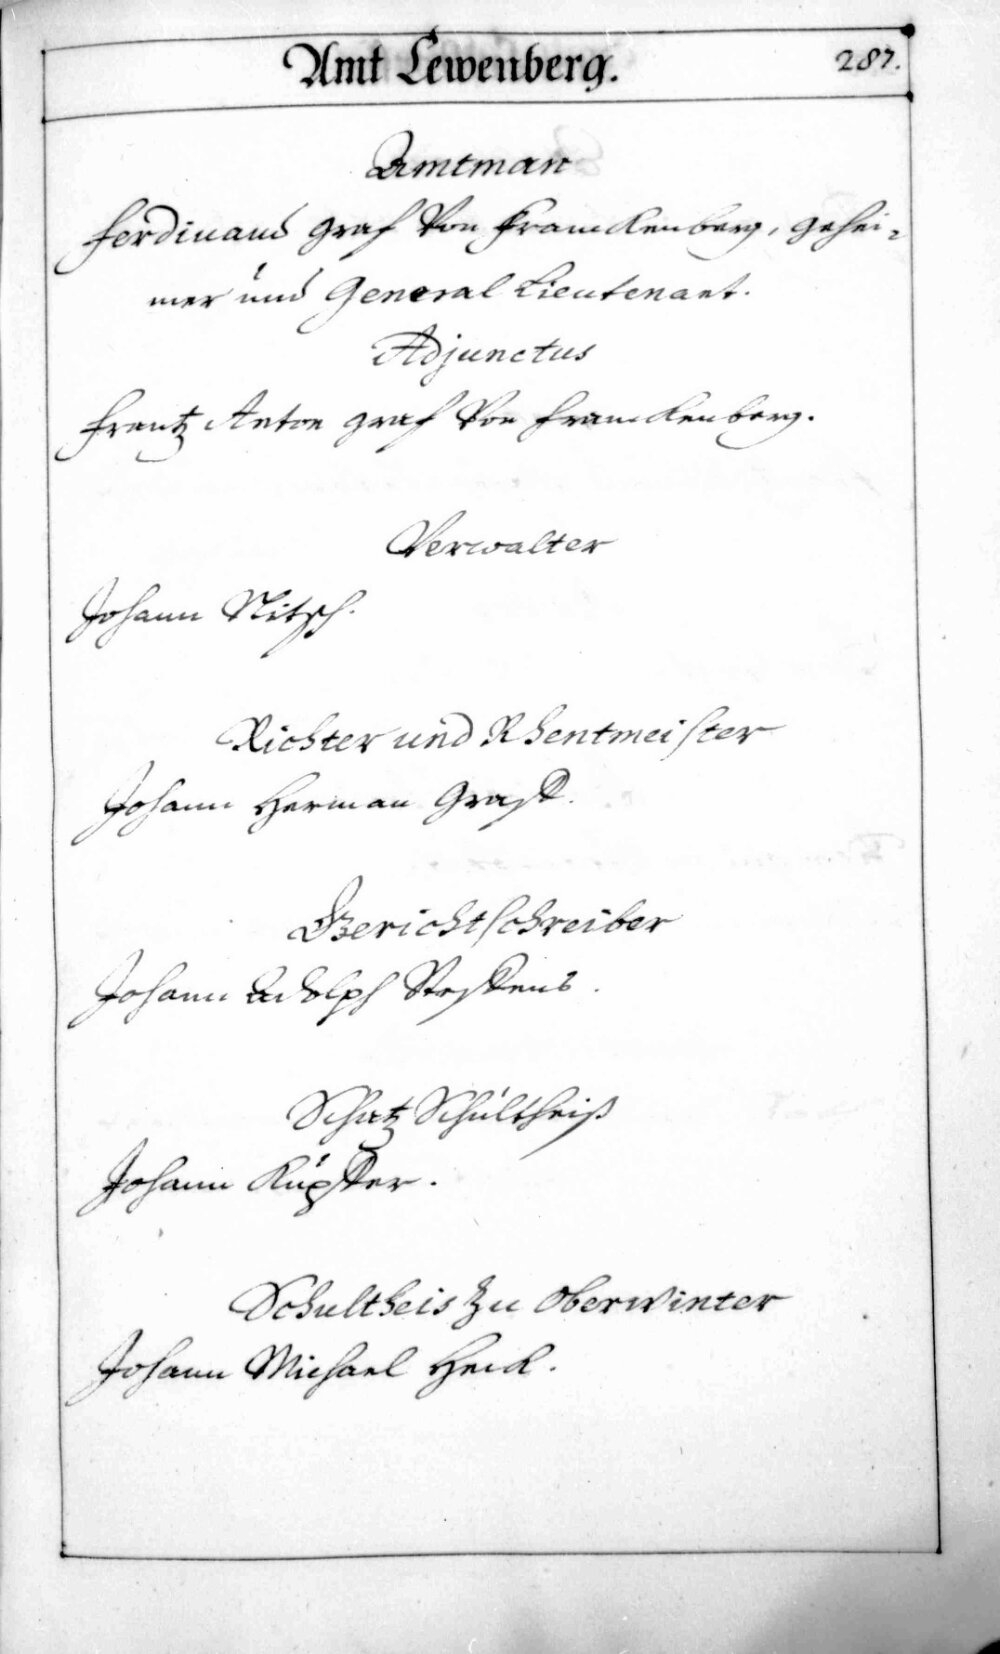 Amt Lewenberg.
287.
Amtman
Ferdinand Graf Von Franckenberg, gehei-
mer und General Lieutenant.
Adjunctus
Frantz Anton Graf Von Franckenberg.
Verwalter
Johann Nitsch.
Richter und Rhentmeister
Johann Herman
Gerichtschreiber
Johann Adolph Steffens.
Schatz Schultheiß
Johann
Schultheis zu Oberwinter
Johann Michael Heck.